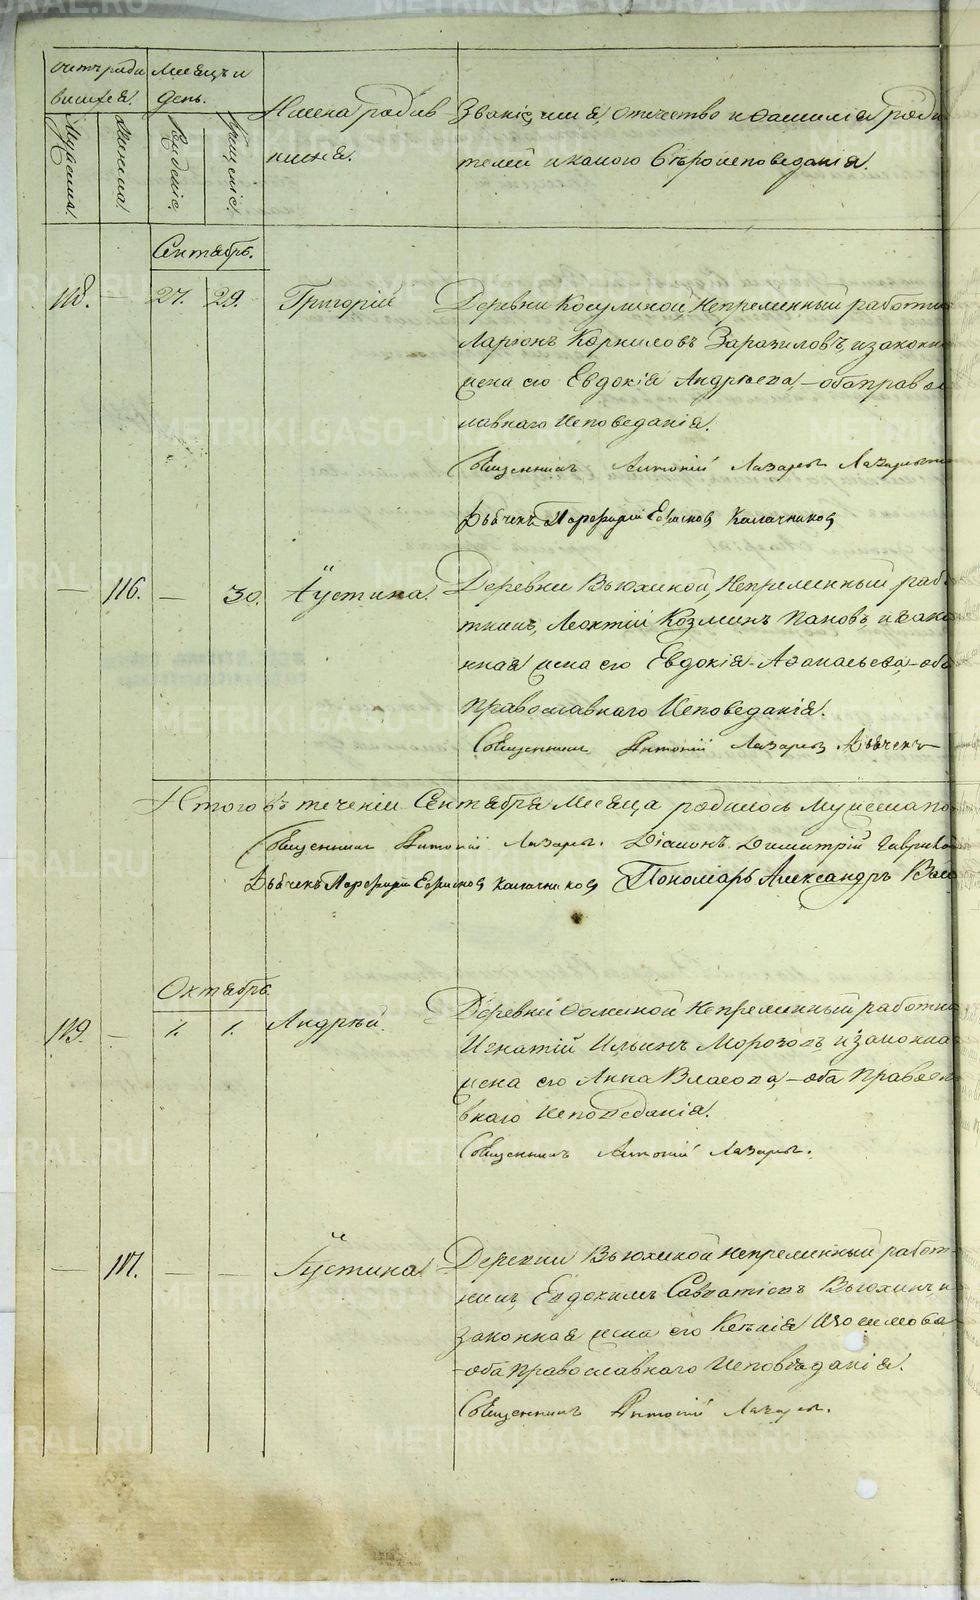 Счетъ роди
вшихся.
Мѣсяцъ и
день.
Мужеска.
Женска.
Рожденіе.
Крещеніе.
Имена родив
шихся.
Званіе, имя, отчество и фамилія роди
телей и какого вѣроисповеданія.
Сентябрь.
118. — 27. 29. Григорій
Деревни Косулиной, Непременный работни
Ларіонъ Корниловъ Заразиловъ, и законн
жена его Евдокія Андрѣева, – оба право
славнаго Исповеданія.
Священникъ Антоній Лазаревъ
Дьячекъ Порфирій Калачниковъ
— 116. — 30. Іустина.
Деревни Вьюхиной, Непременный раб
тникъ, Леонтій Козминъ Пановъ, и зако
нная жена его Евдокія Афанасьева, – оба
православнаго Исповеданія.
Священникъ Антоній Лазаревъ Дьячекъ
Итого въ теченіи Сентября Месяца родилось Мужеска по
Священникъ Антоній Лазаревъ. Діаконъ Димитрій Гаврил
Дьячекъ Порфирій Калачниковъ Пономарь Александръ
Октябрь.
119. — 1. 1. Андрѣй.
Деревни Фоминой Непременный работни
Игнатій Ильинъ Морозовъ и законна
жена его Анна Власова, – оба Правосла
внаго Исповеданія.
Священникъ Антоній Лазаревъ.
— 117. — — Іустина
Деревни Вьюхиной Непременный работ
никъ, Евдокимъ Савватіевъ Вьюхинъ, и
законная жена его Ксенія Изосимова
– оба православнаго Исповѣданія.
Священникъ Антоній Лазаревъ.
METRIKI.GASO-URAL.RU